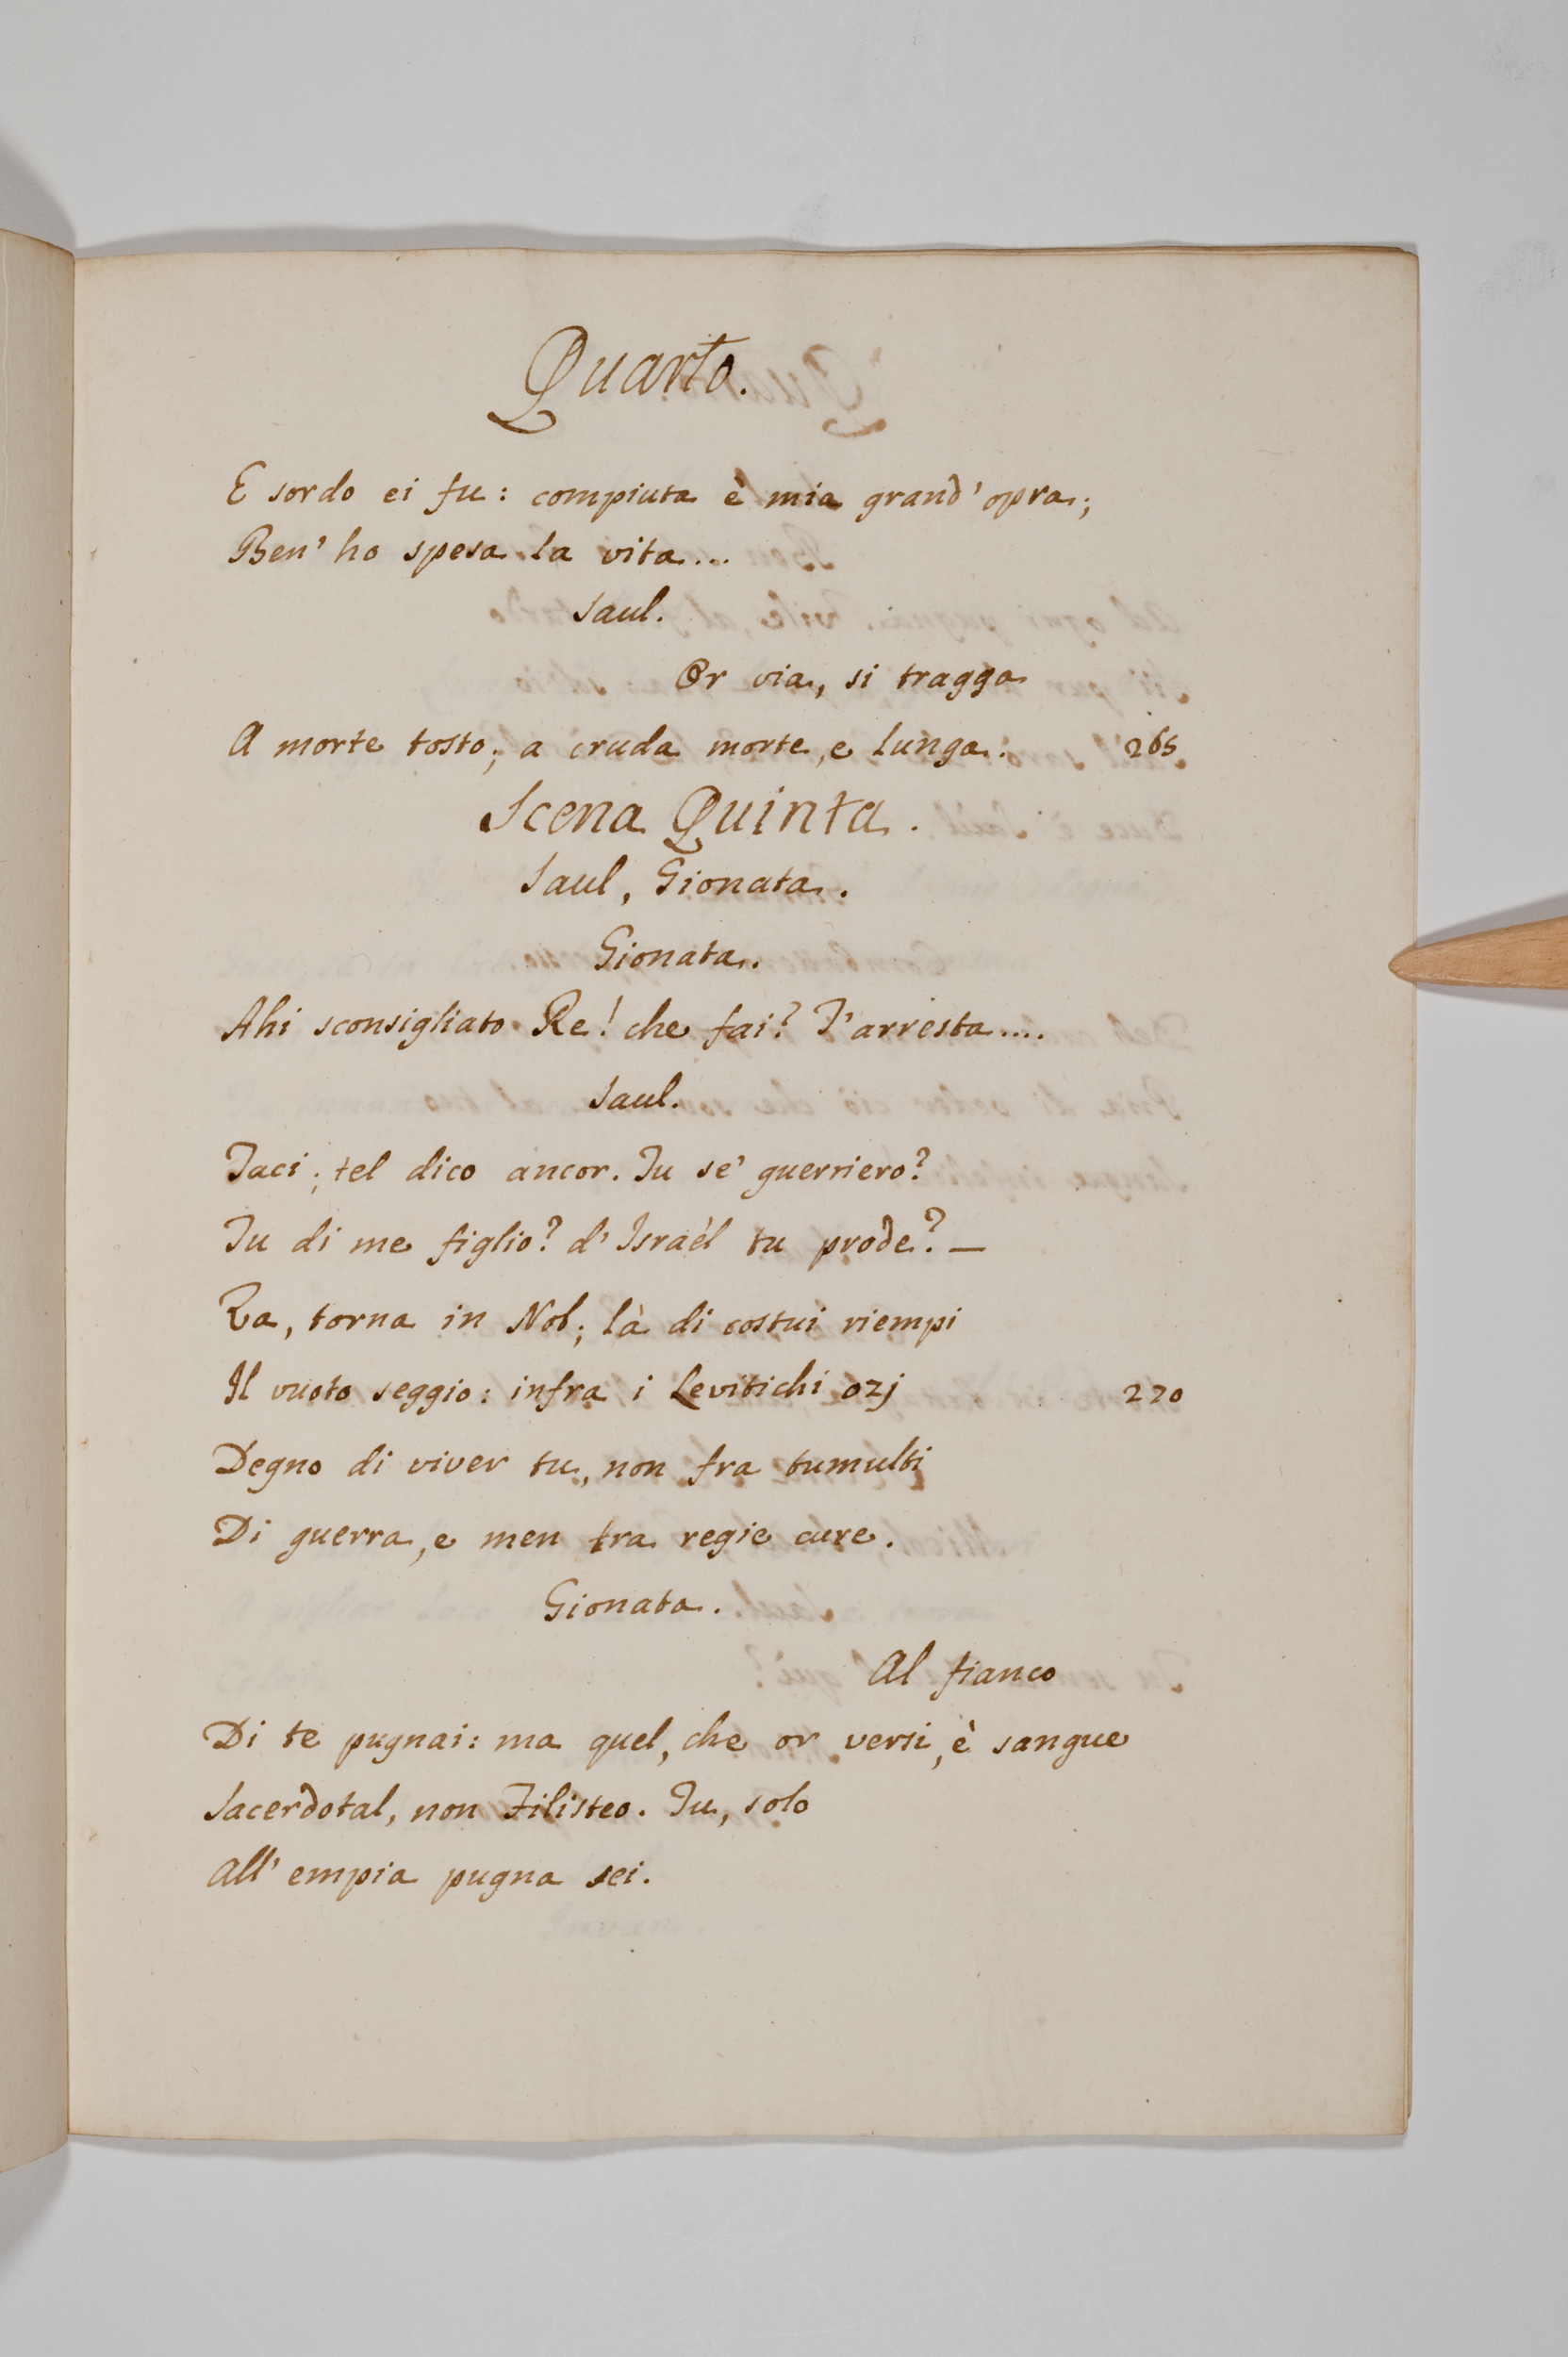 Quarto.
E sordo ei fu: compiuta è mia grand' opra;
Ben' ho spesa la vita...
Saul.
Or via, si tragga
A morte tosto; a cruda morte, e lunga. 265
Scena Quinta.
Saul, Gionata.
Gionata.
Ahi sconsigliato Re! che fai? T'arresta....
Saul.
Taci; tel dico ancor. Tu se' guerriero?
Tu di me figlio? d'Israèl tu prode? —
Va, torna in Nob; là di costui riempi
Il vuoto seggio: infra i Levitichi ozj 270
Degno di viver tu, non fra tumulti
Di guerra, e men tra regie cure.
Gionata.
Al fianco
Di te pugnai: ma quel, che or versi, è sangue
Sacerdotal, non Filisteo. Tu, solo
All' empia pugna sei.